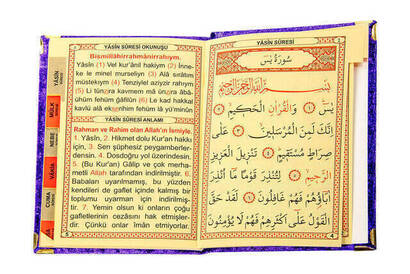 YÂSÎN SÛRESİ OKUNUŞU
Bismillâhirrahmânirrahîym.
Yâsîn (1) Vel kur'ânil hakîym (2) İnne-
ke le minel murseliyn (3) Alâ sırâtım
müstekîym (4) Tenziylel aziyzir rahîym
(5) Li tünzira kavmem mâ ünzira âbâ-
ühüm fehüm gâfilûn (6) Le kad hakkal
kavlü alâ ekserihim fehüm lâ yü'minûn
YÂSÎN SÛRESİ ANLAMI
Rahman ve Rahim olan Allah'ın İsmiyle.
1. Yâsîn, 2. Hikmet dolu Kur'an hakkı
için, 3. Sen şüphesiz peygamberler-
densin. 4. Dosdoğru yol üzerindesin.
5. (Bu Kur'an) Gâlip ve çok merha-
metli Allah tarafından indirilmiştir. 6.
Babaları uyarılmamış, bu yüzden
kendileri de gaflet içinde kalmış bir
toplumu uyarman için indirilmiş-
tir. 7. Yemin olsun ki onların çoğu
gafletlerinin cezasını hak etmişler-
dir. Çünkü onlar iman etmiyorlar.
YÂSÎN
MÜLK
NEBE
VÂKIA
CUMA
YÂSÎN SÛRESİ
سُورَةُ يٰسٓ
بِسْمِ اللّٰهِ الرَّحْمٰنِ الرَّحِيمِ
يٰسٓ ﴿١﴾ وَالْقُرْاٰنِ الْحَكِيمِ ﴿٢﴾
اِنَّكَ لَمِنَ الْمُرْسَلِينَ ﴿٣﴾ عَلٰى
صِرَاطٍ مُسْتَقِيمٍ ﴿٤﴾ تَنْزِيلَ الْعَزِيزِ
الرَّحِيمِ ﴿٥﴾ لِتُنْذِرَ قَوْمًا مَٓا اُنْذِرَ
اٰبَٓاؤُهُمْ فَهُمْ غَافِلُونَ ﴿٦﴾ لَقَدْ حَقَّ
الْقَوْلُ عَلٰٓى اَكْثَرِهِمْ فَهُمْ لَا يُؤْمِنُونَ